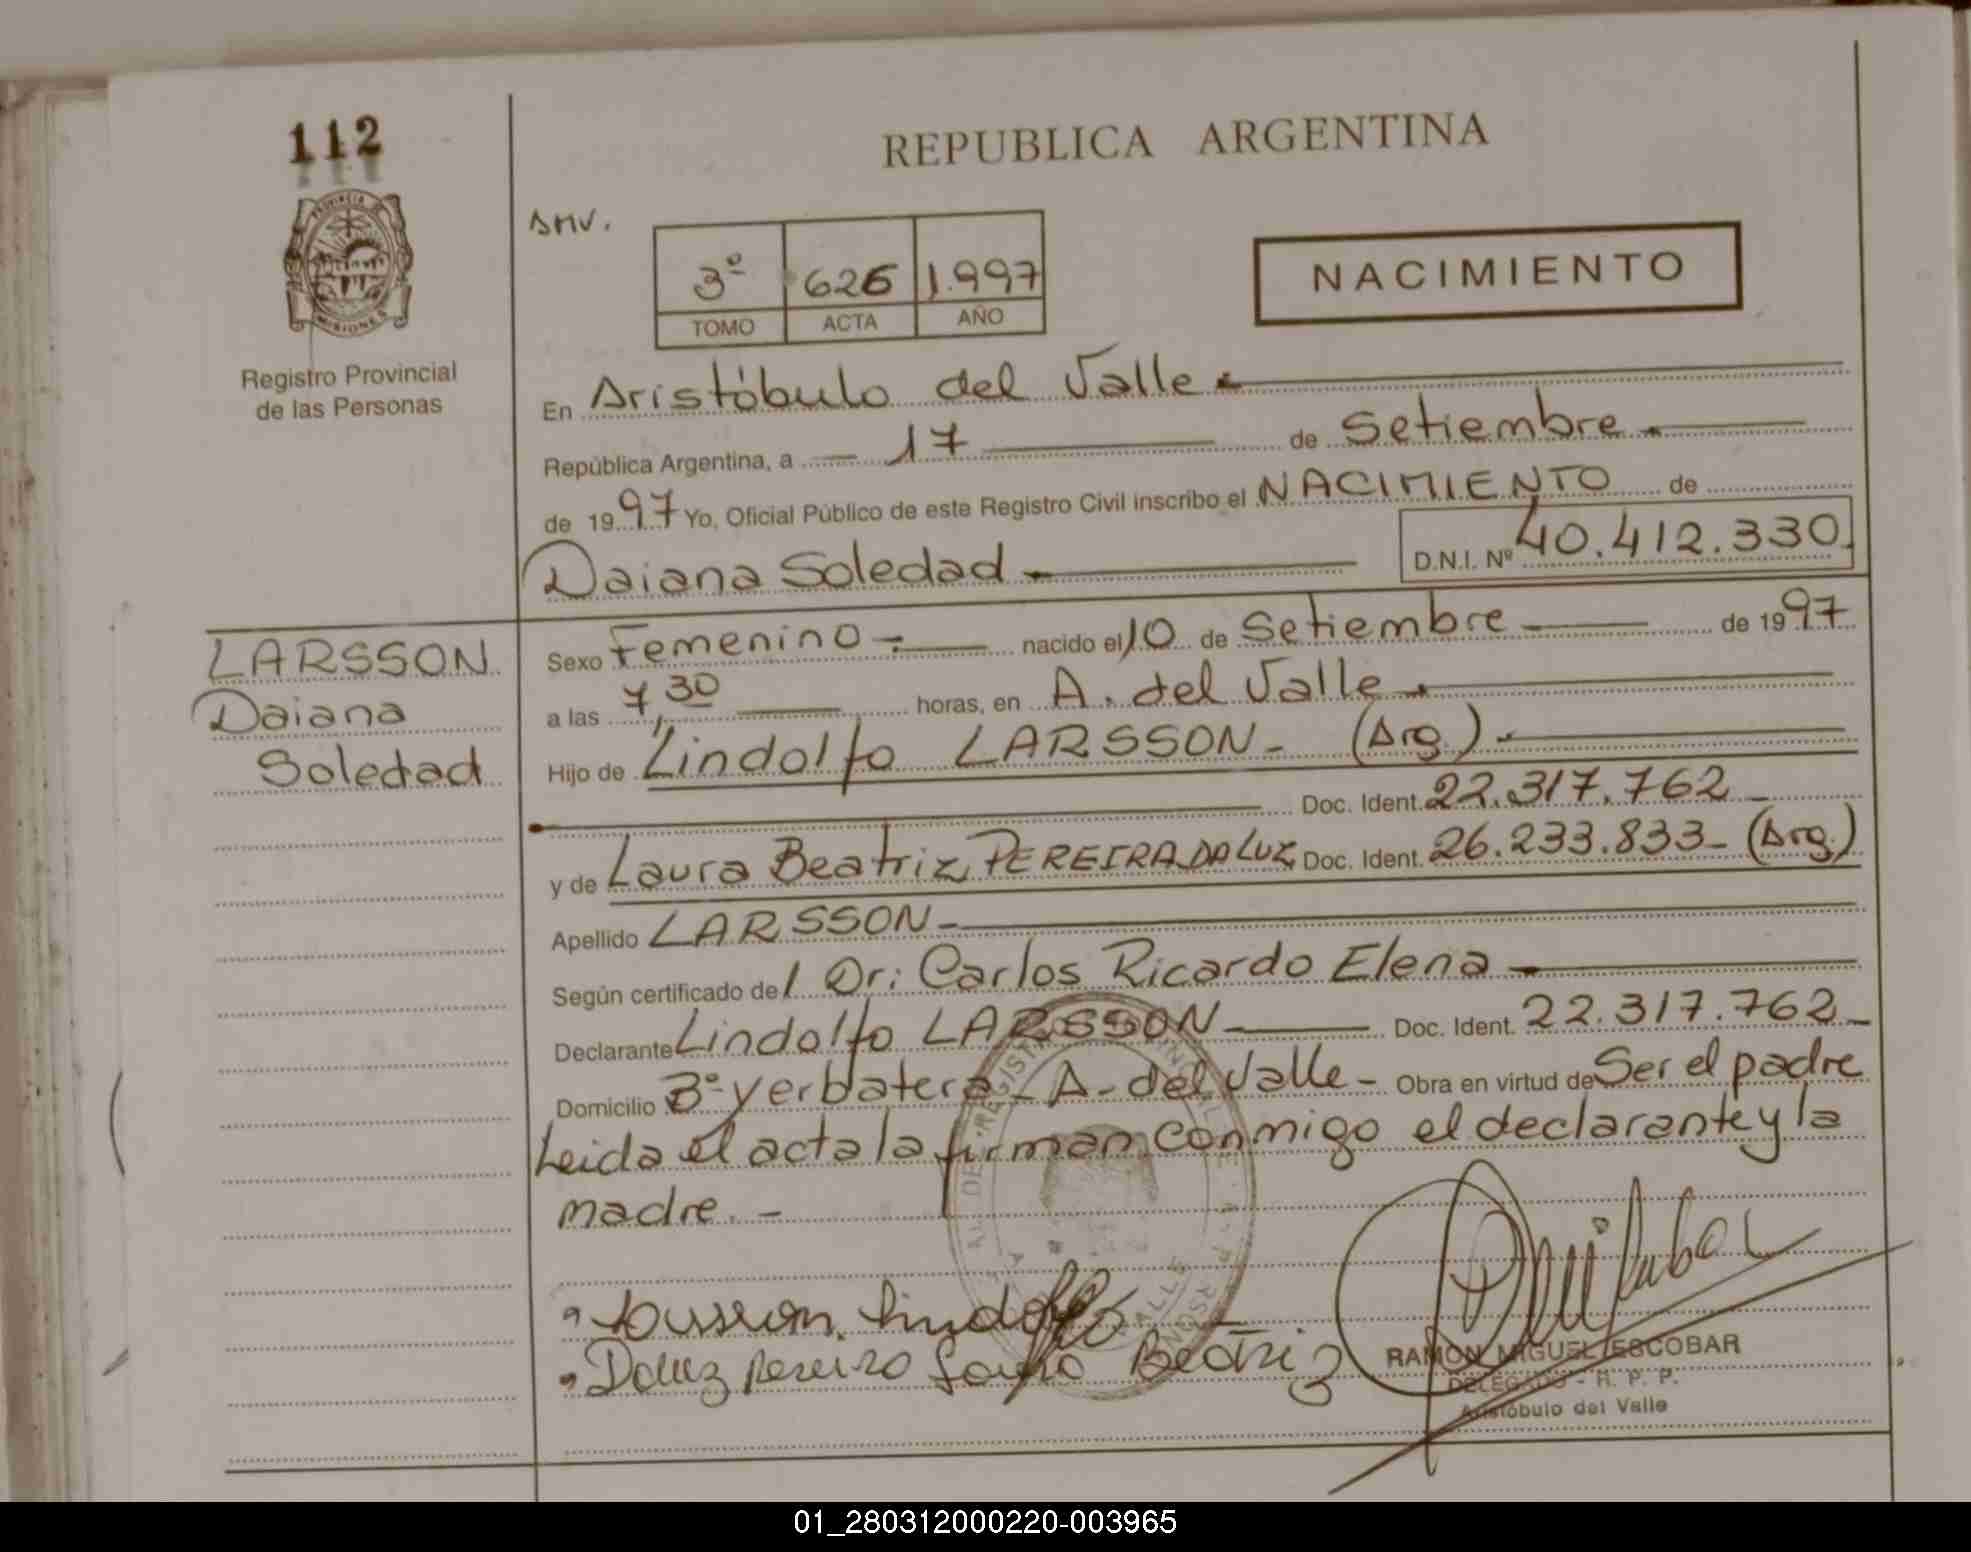 112
REPUBLICA ARGENTINA
PROVINCIA DE
MISIONES
Registro Provincial
de las Personas
AMV.
3º 626 1.997
TOMO ACTA AÑO
NACIMIENTO
En Aristóbulo del Valle.
República Argentina, a 17 de Setiembre.
de 1997 Yo, Oficial Público de este Registro Civil inscribo el NACIMIENTO de
Daiana Soledad D.N.I. Nº 40.412.330
LARSSON
Daiana
Soledad
Sexo Femenino nacido el 10 de Setiembre de 1997
a las 7,30 horas, en A. del Valle.
Hijo de Lindolfo LARSSON- (Arg.).
Doc. Ident. 22.317.762
y de Laura Beatriz PEREIRA DA LUZ Doc. Ident. 26.233.833- (Arg.)
Apellido LARSSON
Según certificado del Dr: Carlos Ricardo Elena
Declarante Lindolfo LARSSON Doc. Ident. 22.317.762
Domicilio Bº yerbatera - A. del Valle - Obra en virtud de Ser el padre
Leida el acta la firman conmigo el declarante y la
madre. -
Lindolfo
Daluz Pereira Laura Beatriz
RAMON MIGUEL ESCOBAR
DELEGADO - R. P. P.
Aristóbulo del Valle
01_280312000220-003965